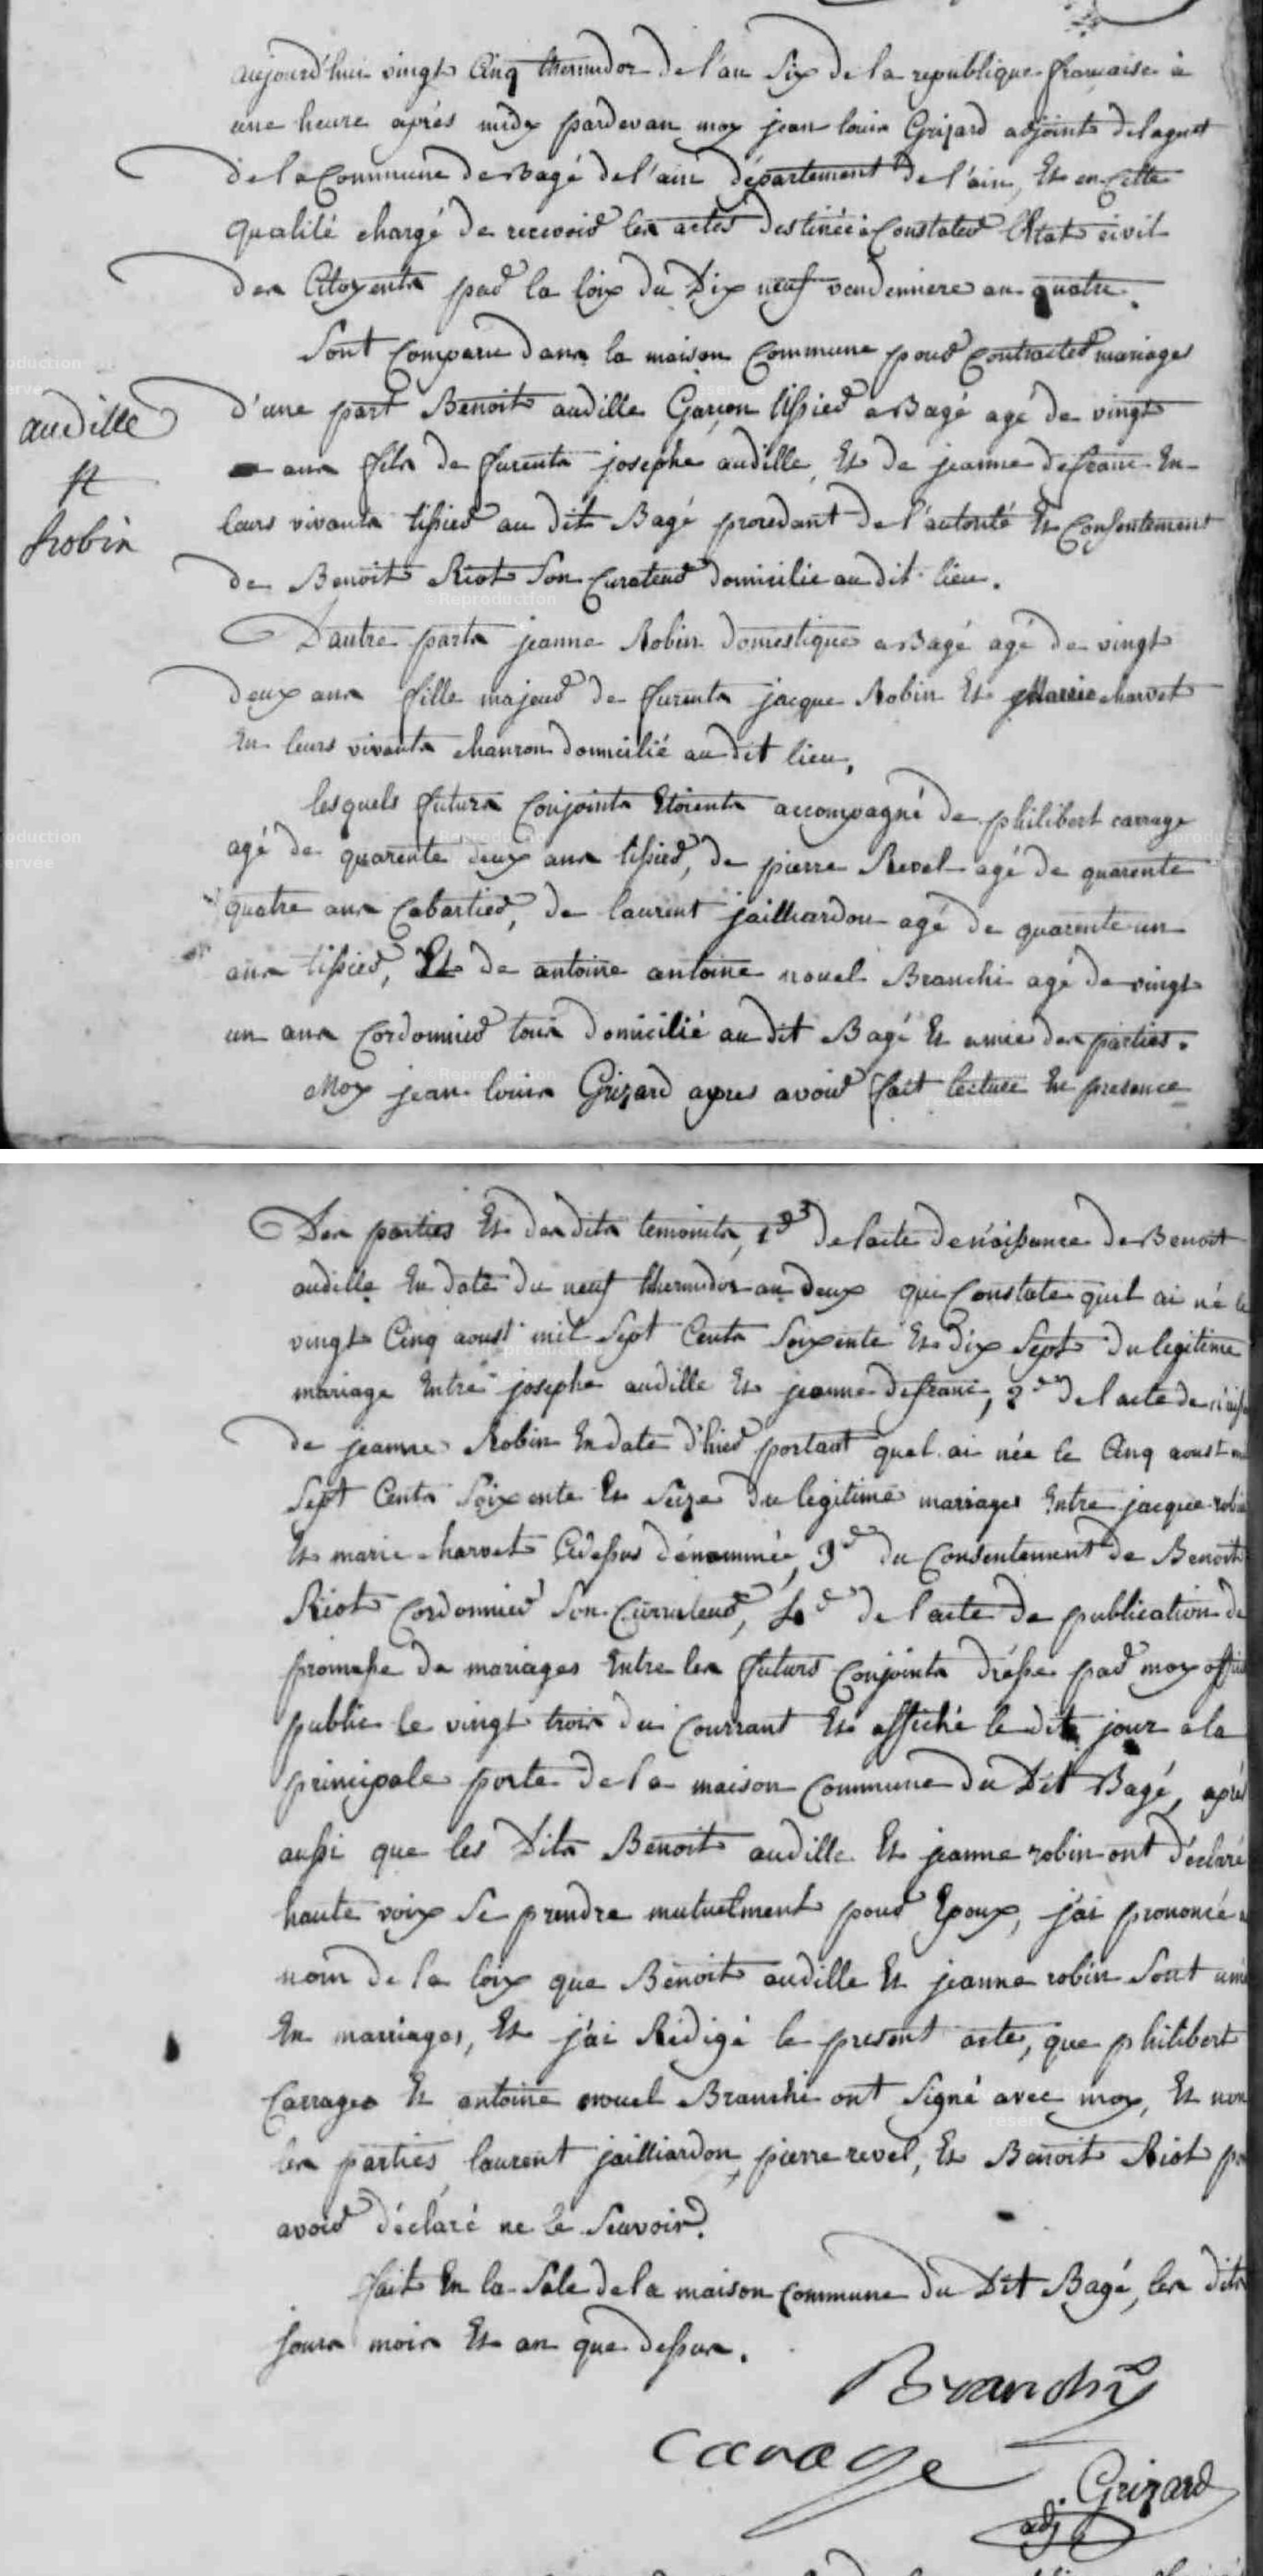 aujourd'hui vingt Cinq thermidor de l'an Six de la republique francaise à
une heure aprés midy pardevan moy jean louis Grizard adjoint de lagent
de la Commune de Bagé de l'ain département de l'ain, Et en Cette
qualité chargé de recevoir les actes destinéé à Constater l'Etat civil
des Citoyents par la loix du Dix neuf vendemiere an quatre.
Sont Comparu dans la maison Commune pour Contracter mariages
audille
d'une part Benoit audille Garçon tissier a Bagé agé de vingt
ans fils de furents josephe audille, Et de jeanne defranc En
Et
leurs vivants tissier au dit Bagé procedant de l'autorité Et Consentement
Robin
de Benoit Riot Son Curateur domicilié au dit lieu.
Dautre parts jeanne Robin domestique a Bagé agé de vingt
deux ans fille majeur de furents jacque Robin Et Marie charvet
En leurs vivants chanron domicilié au dit lieu,
lesquels futurs Conjoints Etoients accompagné de philibert carrage
agé de quarente deux ans tissier, de pierre Revel agé de quarente
quatre ans Cabartier, de laurent jailliardon agé de quarente un
ans tissier, Et de antoine antoine nouel Branchi agé de vingt
un ans Cordonnier tous domicilié au dit Bagé Et amie des parties.
Moy jean louis Grizard apres avoir fait lecture En presence
Des parties Et des dits temoints, 1er de lacte de naissance de Benoit
audille En date du neuf thermidor an deux qui Constate quil ai né le
vingt Cinq aoust mil Sept Cents Soixente Et dix Sept du legitime
mariage Entre josephe audille Et jeanne defranc, 2d de l acte de
de jeanne Robin En date d'hier portant quel ai née le Cinq aoust
Sept Cents Soixente Et Seize du legitime mariages Entre jacque robin
Et marie charvet Cidessus dénommée, 3d du Consentement de Benoit
Riot Cordonnier Son Currateur, 4d de l acte de publication de
promesse de mariages Entre les futurs Conjoints drésse par moy
public le vingt trois du Courrant Et affiché le dit jour a la
principale porte de la maison Commune du Dit Bagé, aprés
aussi que les Dits Benoit audille Et jeanne robin ont déclaré
haute voix Se prendre mutuelment pour Epoux, j'ai prononcé
nom de la loix que Benoit audille Et jeanne robin Sont unis
En marriages, Et j'ai Rédigé le present acte, que philibert
Carrages Et antoine nouel Branchi ont Signé avec moy, Et non
les parties, laurent jailliardon, pierre revel, Et Benoit Riot
avoir déclaré ne le Scavoir.
fait En la Sale de la maison Commune du Dit Bagé, les dits
jours mois Et an que dessus.
Branchi
Carrage
Grizard
adj